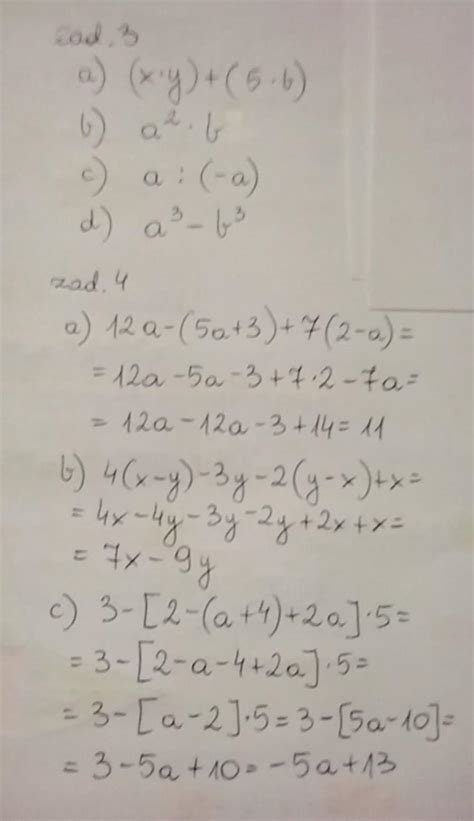 zad. 3
a) (x·y)+(5·b)
b) a²·b
c) a:(-a)
d) a³-b³
zad. 4
a) 12a-(5a+3)+7(2-a)=
=12a-5a-3+7·2-7a=
=12a-12a-3+14=11
b) 4(x-y)-3y-2(y-x)+x=
=4x-4y-3y-2y+2x+x=
=7x-9y
c) 3-[2-(a+4)+2a]·5=
=3-[2-a-4+2a]·5=
=3-[a-2]·5=3-[5a-10]=
=3-5a+10=-5a+13